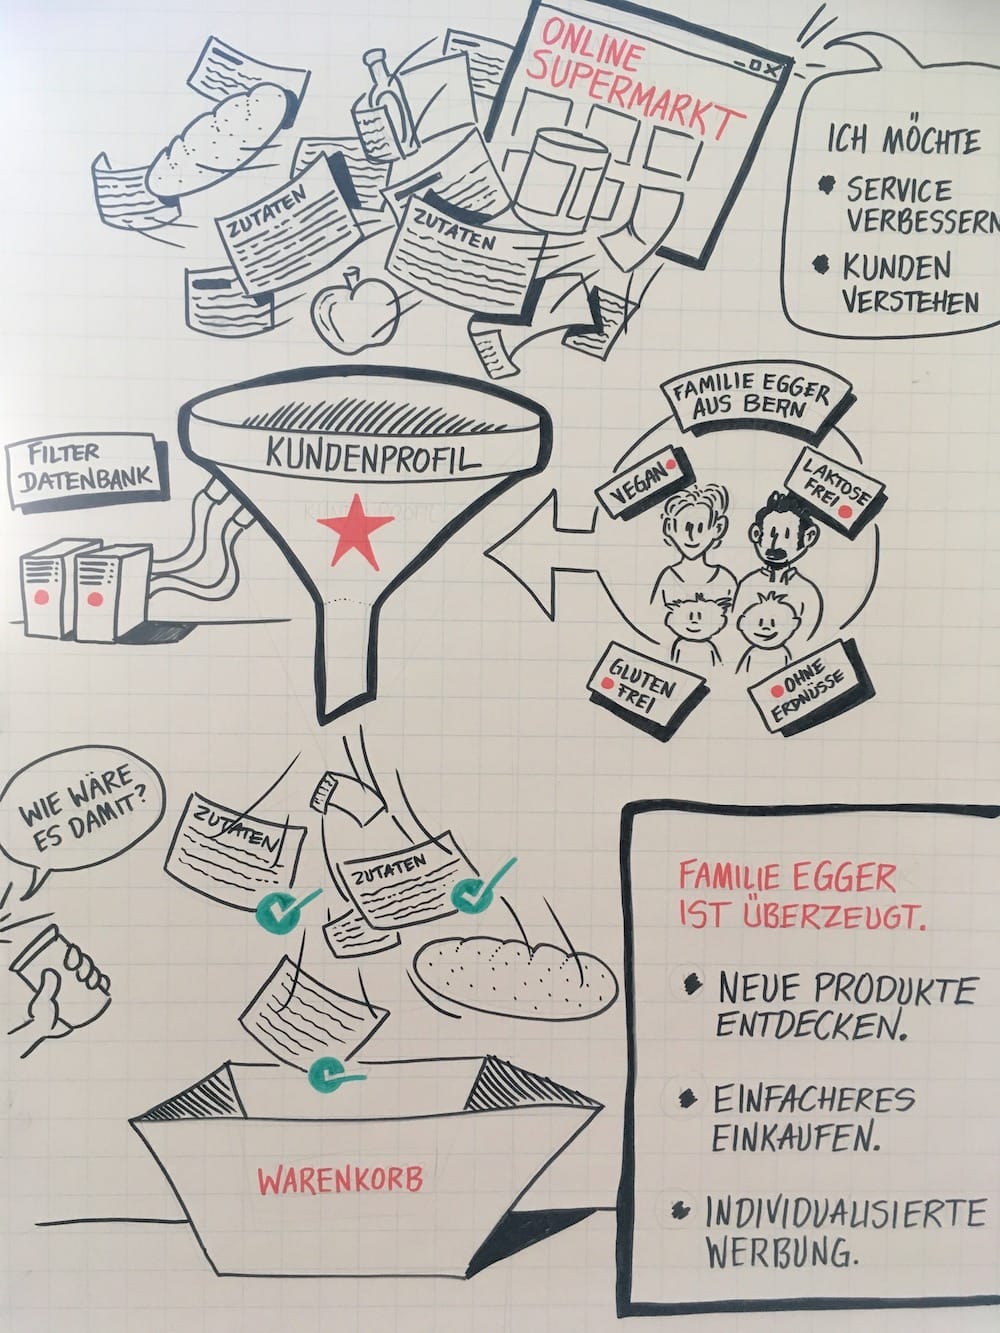 ONLINE
SUPERMARKT
ICH MÖCHTE
SERVICE
VERBESSERN
KUNDEN
VERSTEHEN
ZUTATEN
ZUTATEN
FAMILIE EGGER
AUS BERN
FILTER
DATENBANK
KUNDENPROFIL
VEGAN
LAKTOSE
FREI
GLUTEN
FREI
OHNE
ERDNÜSSE
WIE WÄRE
ES DAMIT?
ZUTATEN
ZUTATEN
FAMILIE EGGER
IST ÜBERZEUGT.
NEUE PRODUKTE
ENTDECKEN.
EINFACHERES
EINKAUFEN.
INDIVIDUALISIERTE
WERBUNG.
WARENKORB